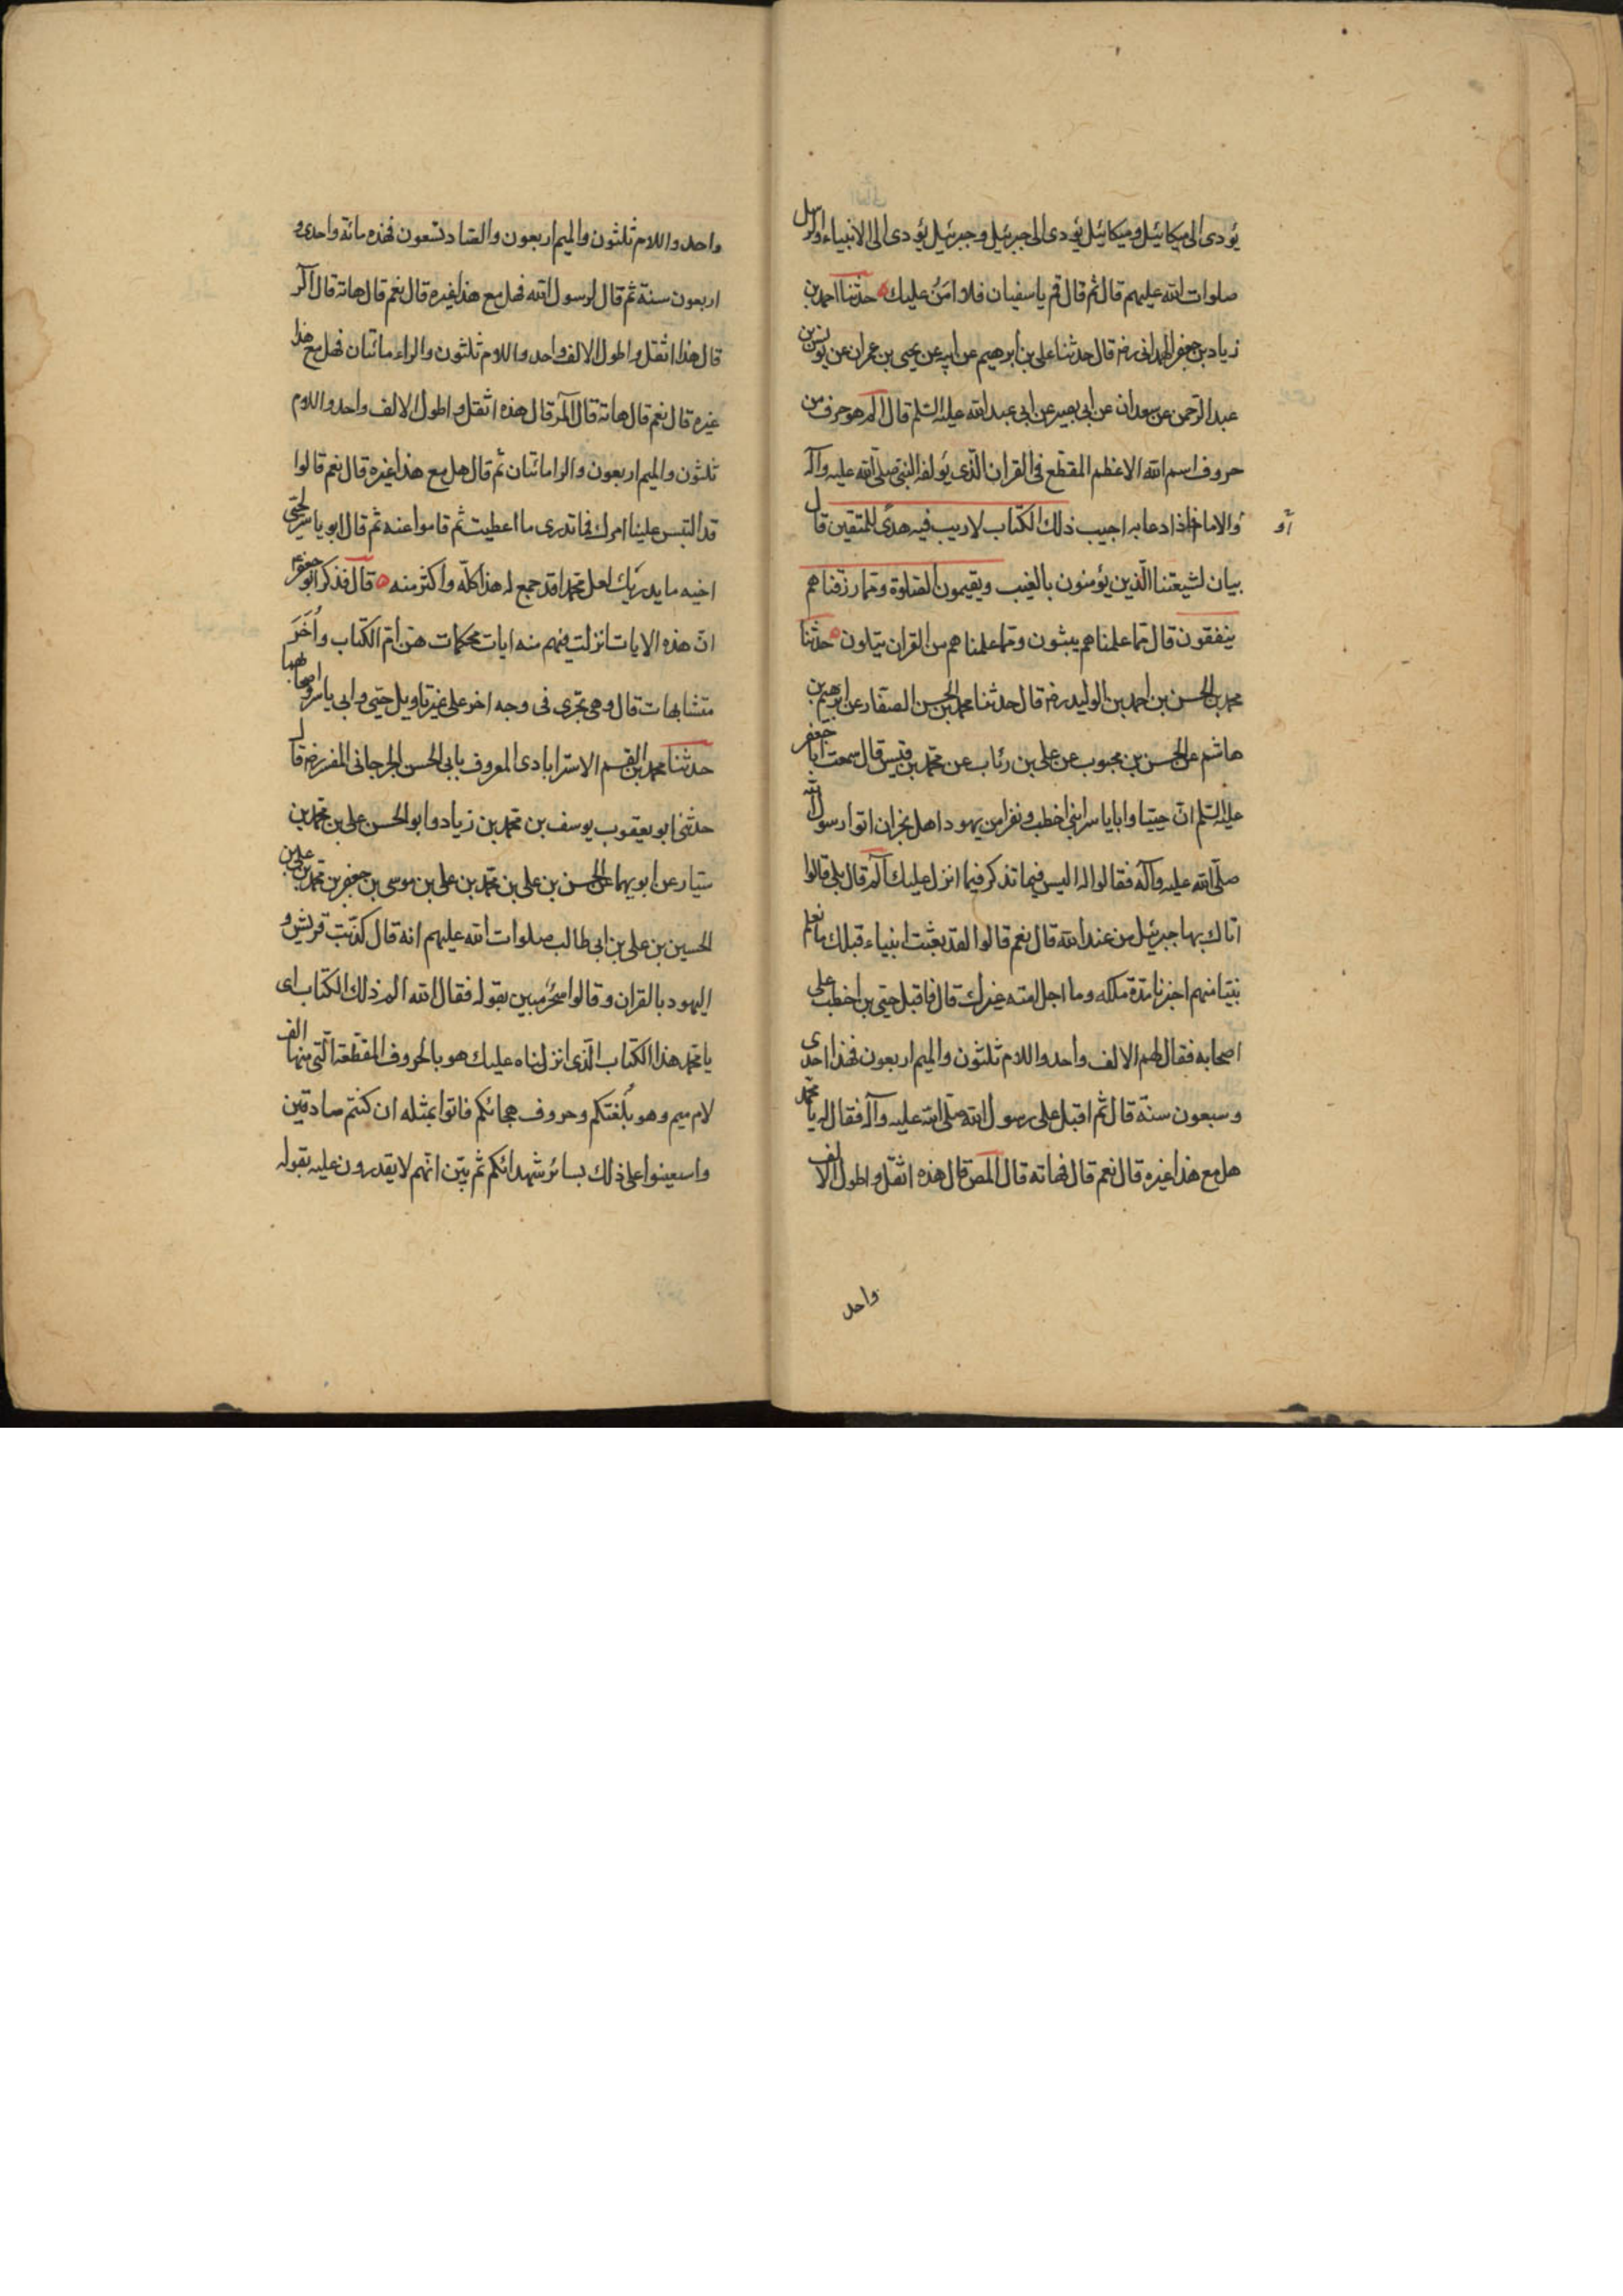 يؤدى الى ميكائيل وميكائيل يؤدى الى جبرئيل وجبرئيل يؤدى الى الانبياء والرسل
صلوات الله عليهم قال ثم قال قم يا سفيان فلا امن عليك حدثنا احمد بن
زياد بن جعفر الهمدانى رضه قال حدثنا على بن ابرهيم عن ابيه عن يحيى بن عمران عن يونس بن
عبد الرحمن عن سعدان عن ابى بصير عن ابى عبد الله عليه السلم قال الم هو حرف من
حروف اسم الله الاعظم المقطع فى القران الذى يؤلفه النبى صلى الله عليه وآله
والامام فاذا دعا به اجيب ذلك الكتاب لاريب فيه هدى للمتقين قال
أو
بيان لشيعتنا الذين يؤمنون بالغيب ويقيمون الصلوة ومما رزقناهم
ينفقون قال مما علمناهم يبثون ومما علمناهم من القران يتلون حدثنا
محمد بن الحسن بن احمد بن الوليد رضه قال حدثنا محمد بن الحسن الصفار عن ابرهيم بن
هاشم عن الحسن بن محبوب عن على بن رئاب عن محمد بن قيس قال سمعت ابا جعفر
عليه السلم ان حييا وابا ياسر ابنى اخطب ونفرا من يهود اهل نجران اتوا رسول الله
صلى الله عليه وآله فقالوا له اليس فيما تذكر فيما انزل عليك الم قال بلى قالوا
اتاك بها جبرئيل من عند الله قال نعم قالوا لقد بعثت انبياء قبلك ما نعلم
نبيا منهم اخبرنا مدة ملكه وما اجل امته غيرك قال فاقبل حيى بن اخطب على
اصحابه فقال لهم الالف واحد واللام ثلثون والميم اربعون فهذا احدى
وسبعون سنة قال ثم اقبل على رسول الله صلى الله عليه وآله فقال له يا محمد
هل مع هذا غيره قال نعم قال فهاته قال المص قال هذه اثقل واطول الالف
واحد
واحد واللام ثلثون والميم اربعون والصاد تسعون فهذه مائة واحدى و
اربعون سنة ثم قال لرسول الله فهل مع هذا غيره قال نعم قال هاته قال الر
قال هذا اثقل واطول الالف واحد واللام ثلثون والراء مائتان فهل مع هذا
غيره قال نعم قال هاته قال المر قال هذه اثقل واطول الالف واحد واللام
ثلثون والميم اربعون والرا مائتان ثم قال هل مع هذا غيره قال نعم قالوا
قد التبس علينا امرك فما تدرى ما اعطيت ثم قاموا عنه ثم قال ابو ياسر لحيى
اخيه ما يدريك لعل محمدا قد جمع له هذا كله واكثر منه قال فذكر ابو جعفر ع
ان هذه الايات انزلت فيهم منه ايات محكمات هن ام الكتاب وأخر
متشابهات قال وهى تجرى فى وجه اخر على غير تاويل حيى وابى ياسر واصحابهما
حدثنا محمد بن القسم الاسترابادى المعروف بابى الحسن الجرجانى المفسر رضه قال
حدثنى ابو يعقوب يوسف بن محمد بن زياد وابو الحسن على بن محمد بن
سيار عن ابويهما عن الحسن بن على بن محمد بن على بن موسى بن جعفر بن محمد بن على بن
الحسين بن على بن ابى طالب صلوات الله عليهم انه قال كذبت قريش و
اليهود بالقران وقالوا سحر مبين بقوله فقال الله الم ذلك الكتاب اى
يا محمد هذا الكتاب الذى انزلناه عليك هو بالحروف المقطعة التى منها الف
لام ميم وهو بلغتكم وحروف هجائكم فاتوا بمثله ان كنتم صادقين
واستعينوا على ذلك بسائر شهدائكم ثم بين انهم لا يقدرون عليه بقوله